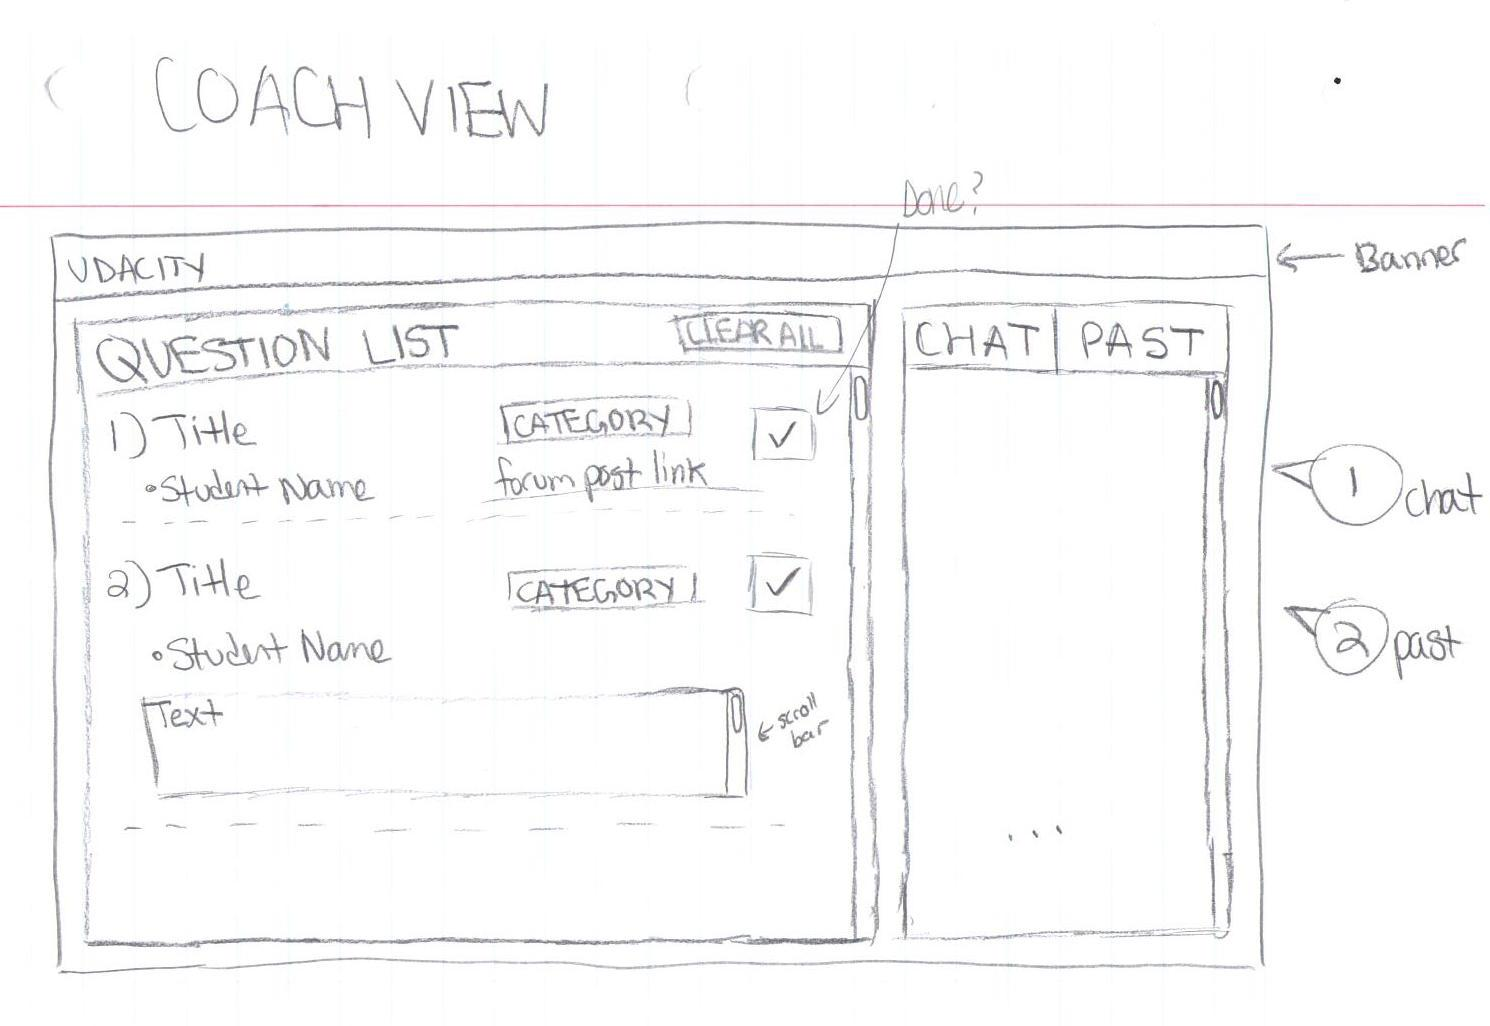 COACH VIEW
Done?
UDACITY
Banner
QUESTION LIST
CLEAR ALL
CHAT
PAST
1) Title
CATEGORY
✓
• Student Name
forum post link
1 chat
2) Title
CATEGORY
✓
• Student Name
2 past
Text
scroll
bar
...